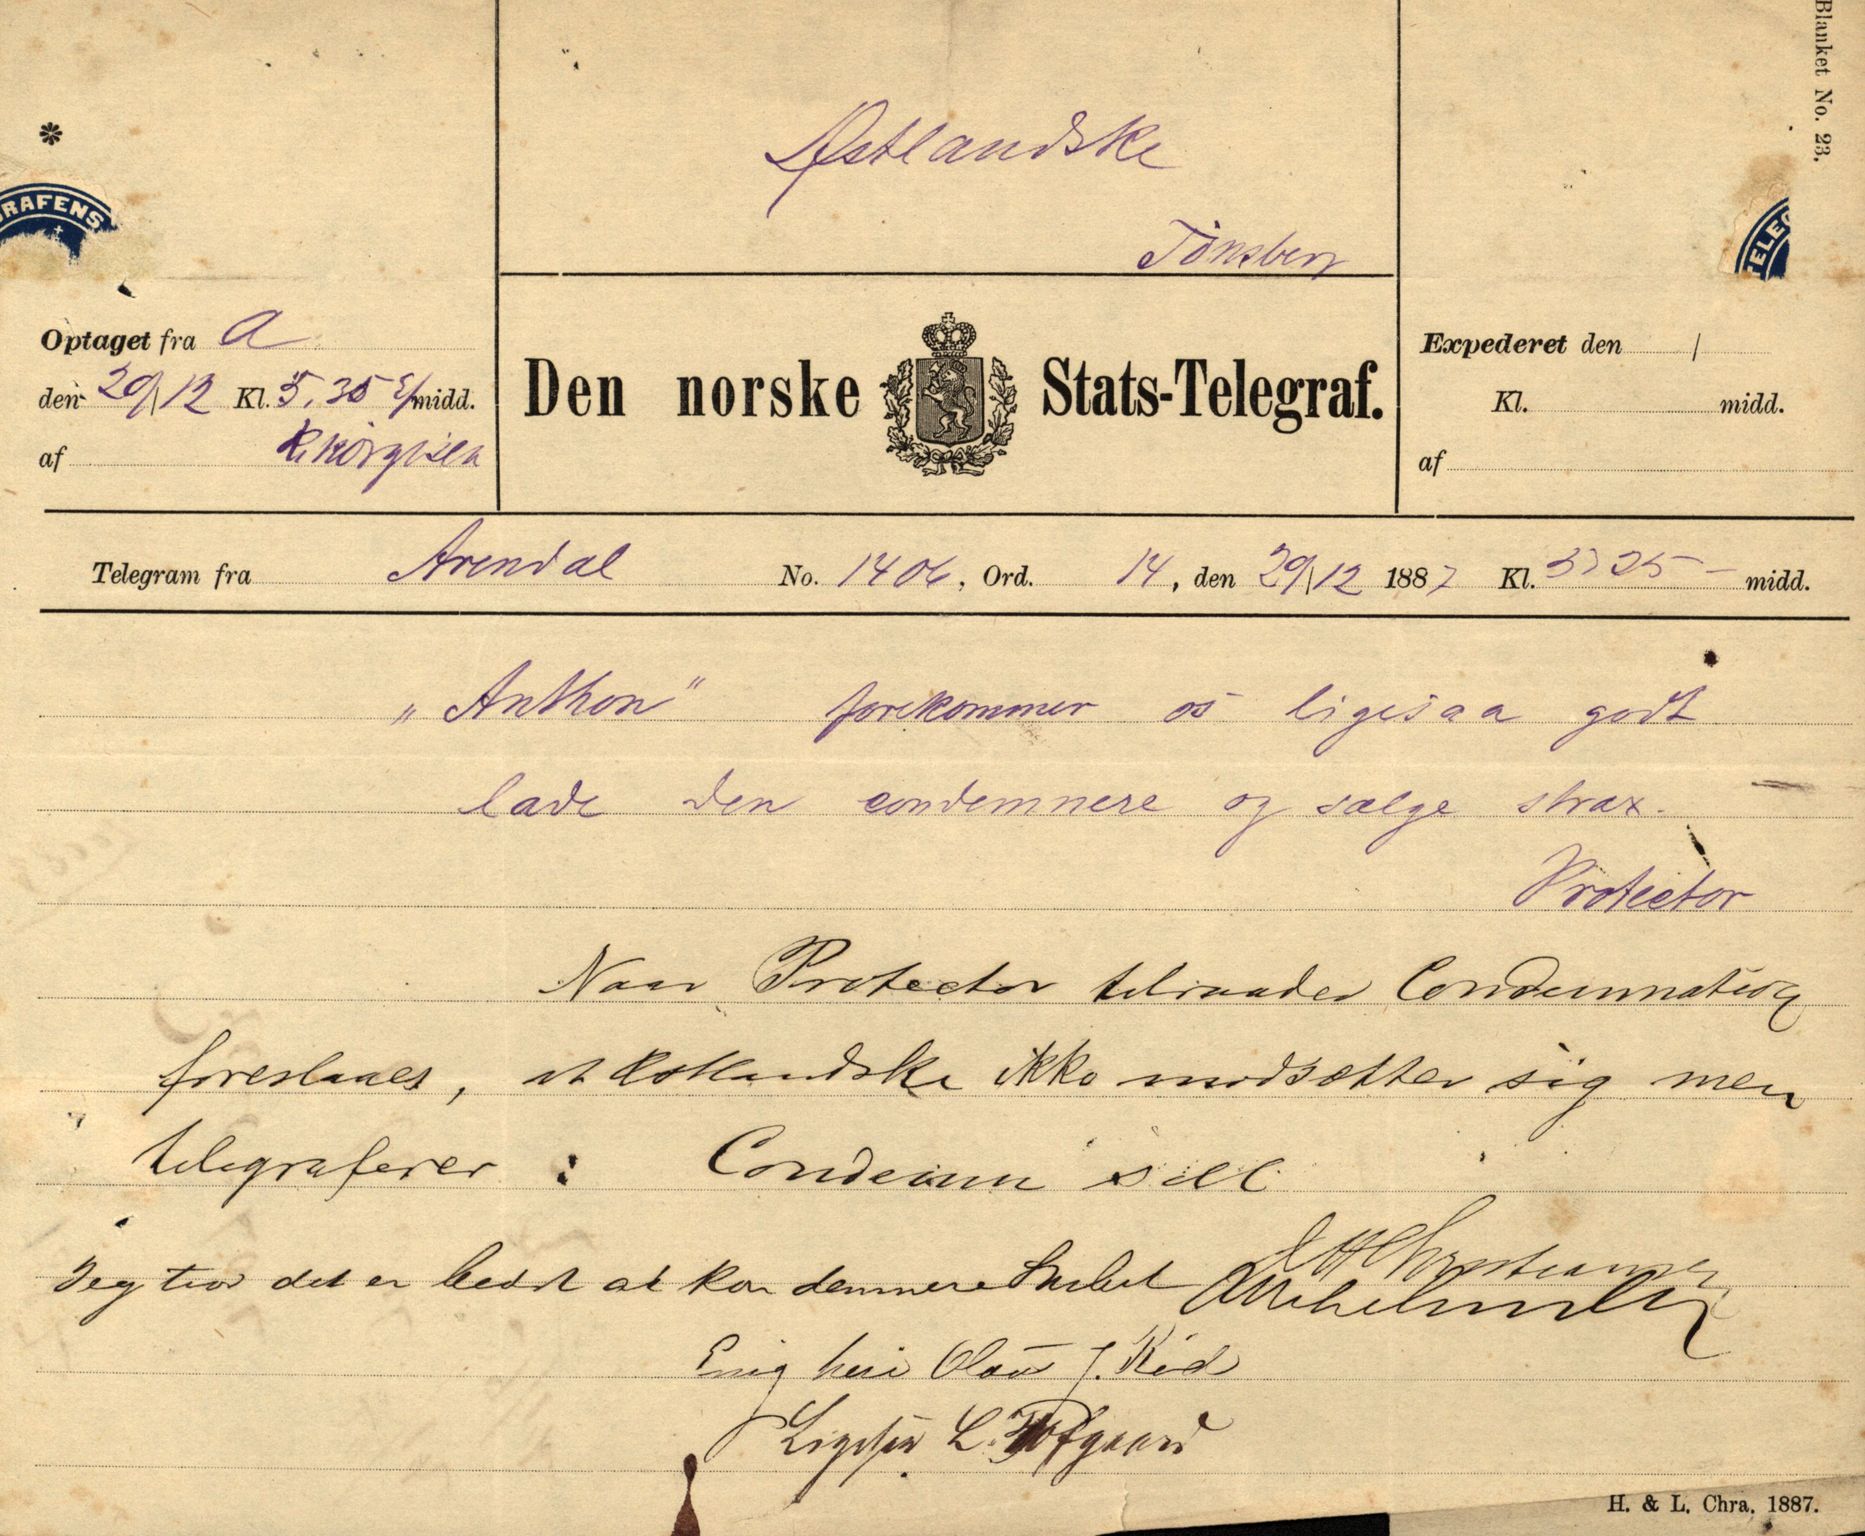 Blanket No. 23.
Østlandske
Tönsberg
*
RAFENS
TELEG
Optaget fra A
den 29/12 Kl. 5,35 E/midd.
af
Den norske Stats-Telegraf.
Expederet den /
Kl. midd.
af
Telegram fra Arendal No. 1406, Ord. 14, den 29/12 1887 Kl. midd.
„Anthon" forekommer os ligesaa godt
lade den condemnere og sælge strax.
Protector
Naar Protector tilraader Condemnation
foreslaaes, at Østlandske ikke modsætter sig men
telegraferer : Condemn sell
Jeg tror det er bedst at kondemnere
Enig heri Olaus J.
Ligesaa L. Tofgaard
H. & L. Chra. 1887.